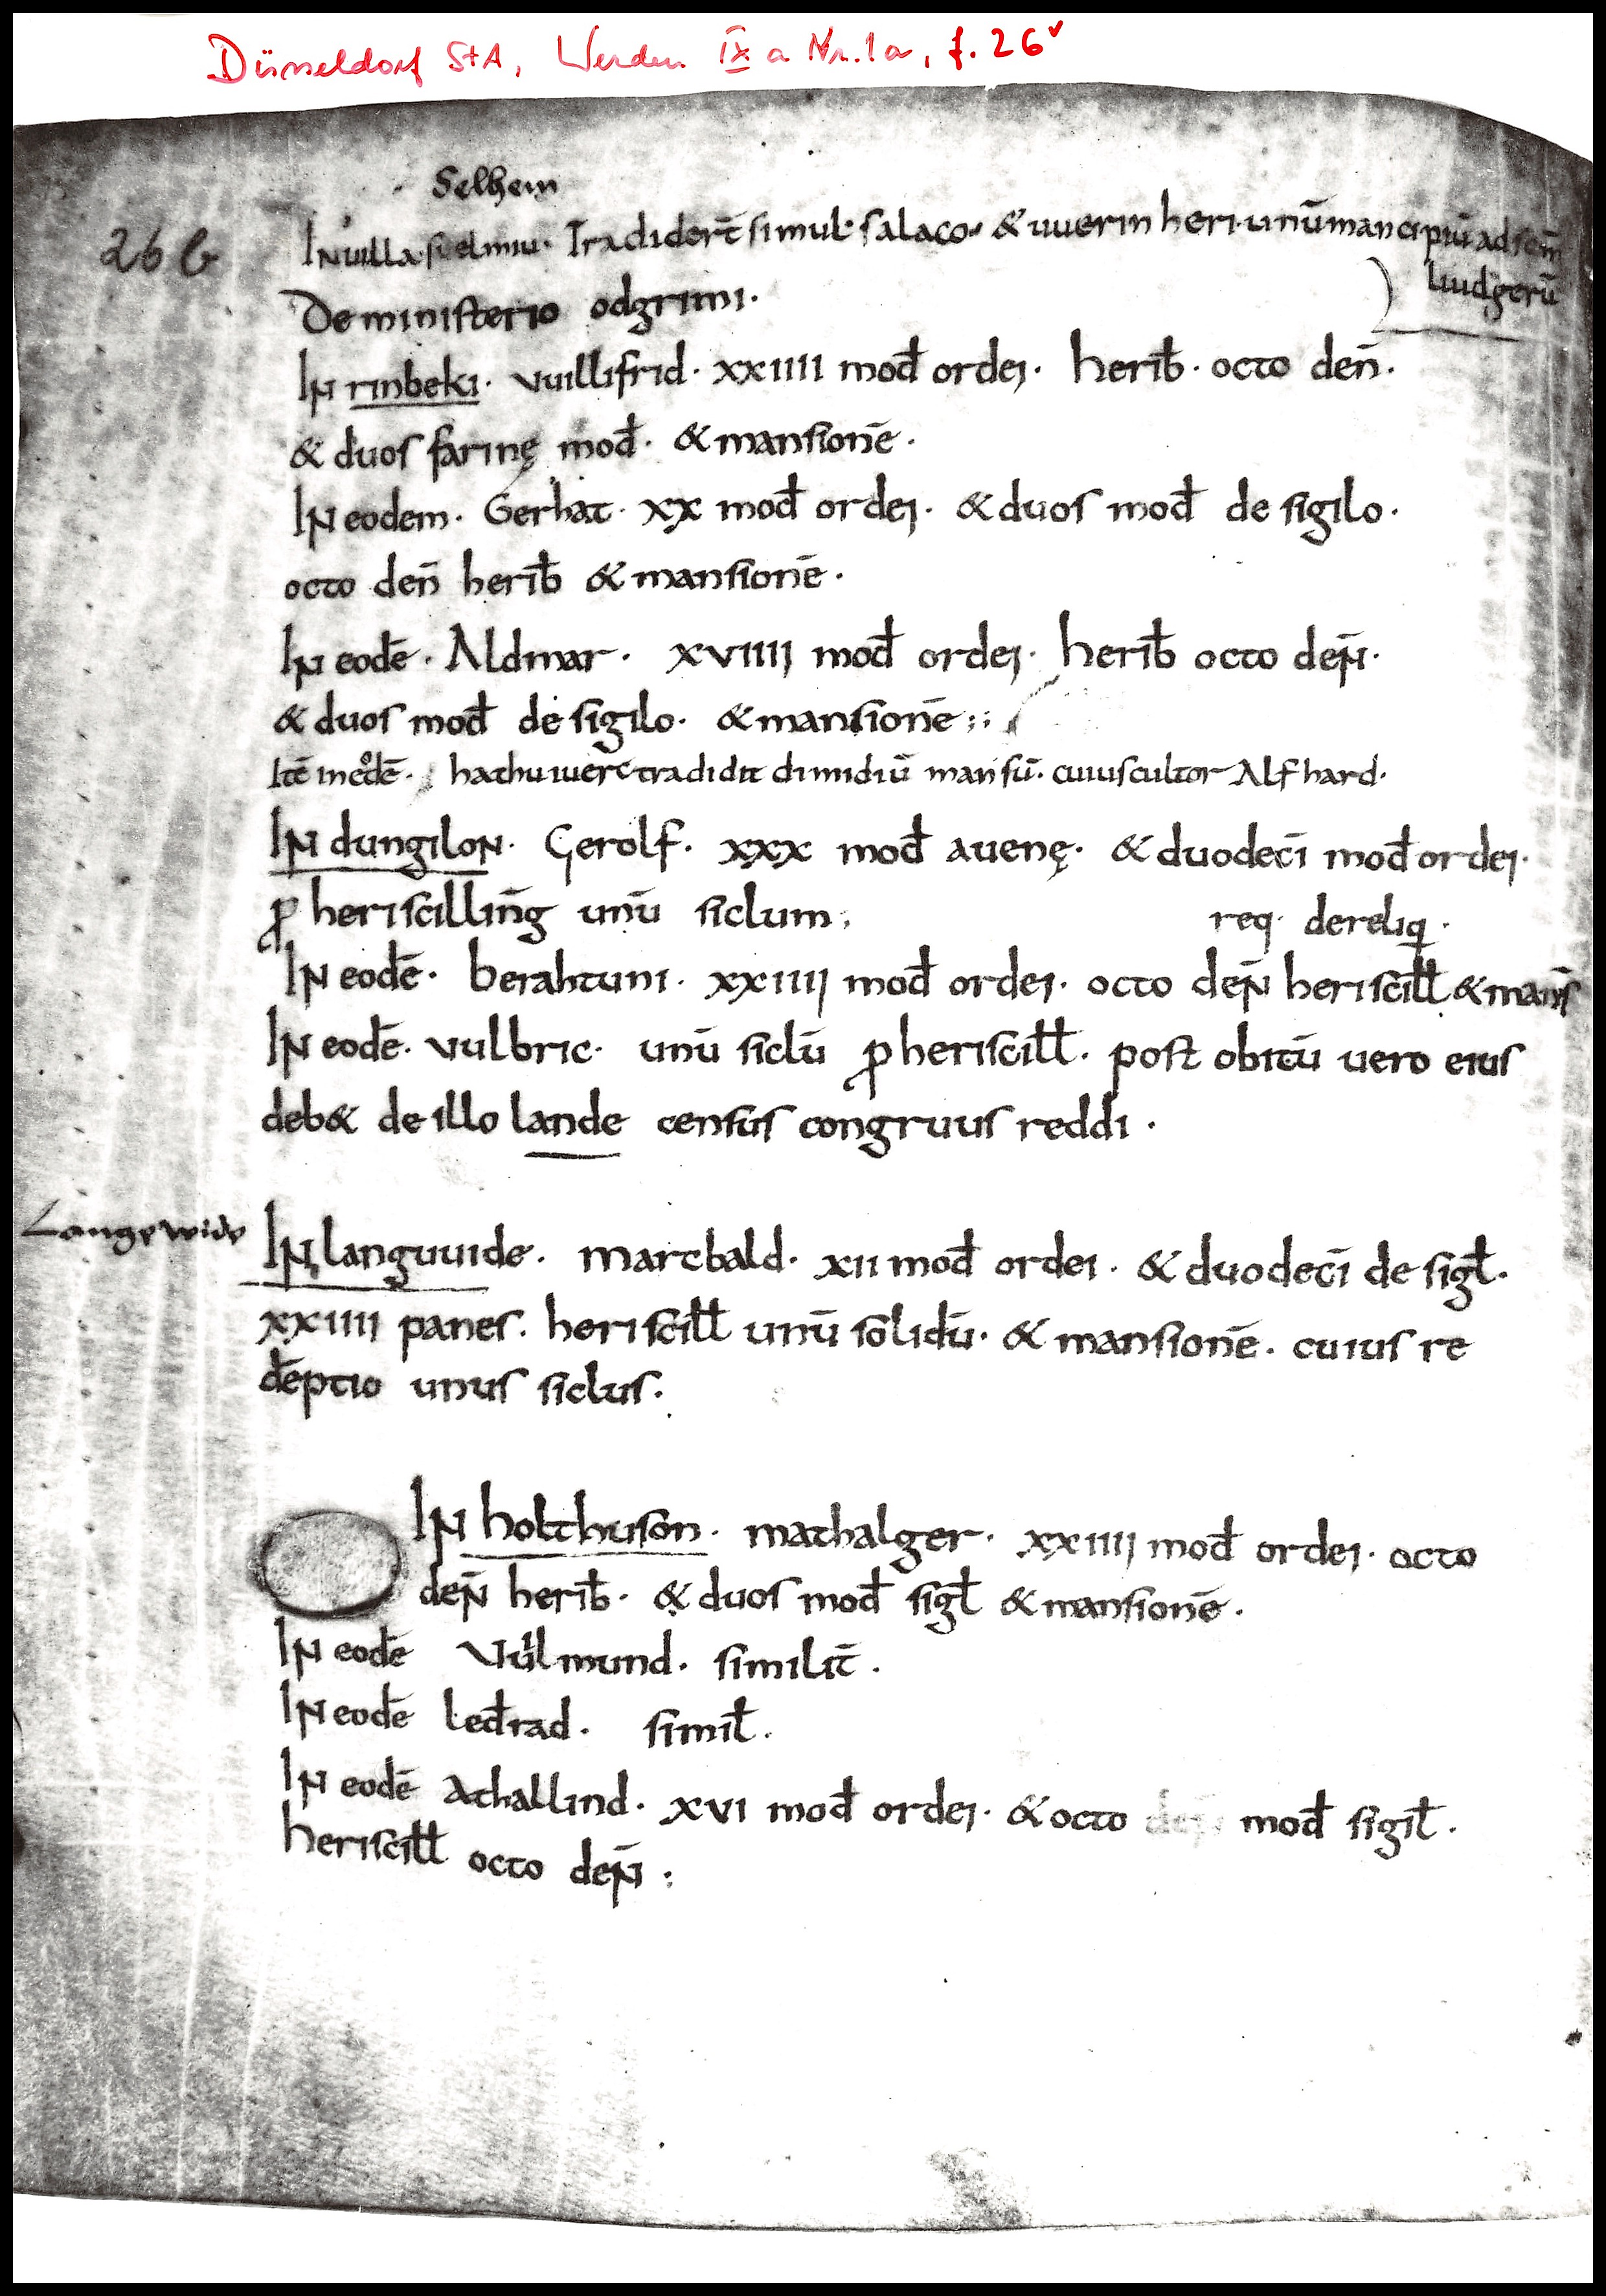 Düsseldorf StA, Werden IX a Nr. 1a, f. 26v
Selhem
26 b
In uilla sielmiu· Tradider̄t simul· salaco· & uuerinheri· unū mancipiū ad sc̄m
liudgerū
De ministerio odgrimi·
In rinbeki· vuillifrid· xxiiii mod̄ ordei· herib̄· octo den̄·
& duos farinę mod̄· & mansionē·
In eodem· Gerhat· xx mod̄ ordei· & duos mod̄ de sigilo·
octo den̄ herib̄ & mansionē·
In eodē· Aldmar· xviiij mod̄ ordei· herib̄ octo den̄·
& duos mod̄ de sigilo· & mansionē
Itē in eodē· hathuuuerc tradidit dimidiū mansū· cuius cultor Alfhard·
In dungilon· Gerolf· xxx mod̄ auenę· & duodecī mod̄ ordei·
ꝓ heriscillin̄g unū siclum
req· dereliq·
In eodē· berahtuni· xxiiij mod̄ ordei· octo den̄ heriscill̄ & man̄s
In eodē· vulbric· unū siclū ꝓ heriscill̄· post obitū uero eius
deb& de illo lande census congruus reddi·
Langewide
In languuide· marcbald· xii mod̄ ordei· & duodecī de sigl̄·
xxiiii panes· heriscill̄ unū solidū· & mansionē· cuius re
dēptio unus siclus·
In holthuson· mathalger· xxiiij mod̄ ordei· octo
den̄ herib̄· & duos mod̄ sigl̄ & mansionē·
In eodē Vuilmund· similit̄·
In eodē led̄rad· simil̄·
In eodē Athallind· xvi mod̄ ordei· & octo mod̄ sigil̄·
heriscill̄ octo den̄